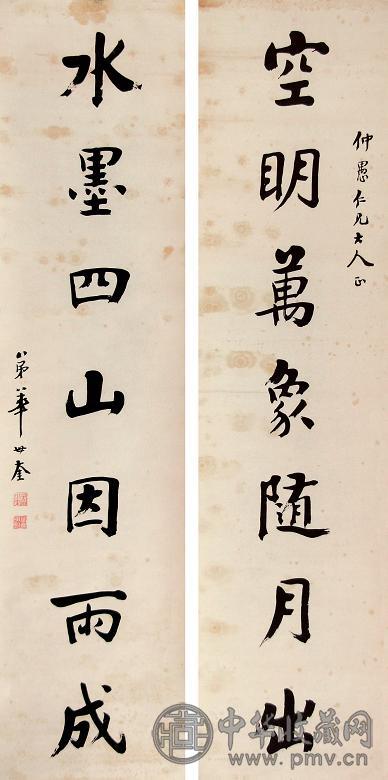 仲愚仁兄大人正
空明萬象隨月出
水墨四山因雨成
弟華世奎
中华收藏网
www.pmv.cn